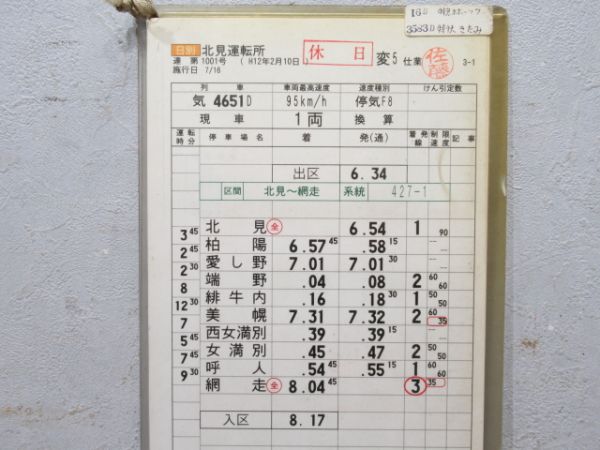 日別 北見運転所 休日 変5 仕業 佐藤 3-1
達 第1001号 ( H12年2月10日 )
施行日 7/16
列車 車両最高速度 速度種別 けん引定数
気 4651D 95km/h 停気F8
現車 1両 換算
運転時分 停車場名 着 発(通) 着線 発線 制限速度 記事
出区 6.34
区間 北見～網走 系統 427-1
北見 全 6.54 1 90
3 45
柏陽 6.57 45 .58 15
2 45
愛し野 7.01 7.01 30
2 30
端野 .04 .08 2 60 60
8
緋牛内 .16 .18 30 1 50 50
12 30
美幌 7.31 7.32 2 60 35
7
西女満別 .39 .39 15
5 45
女満別 .45 .47 2 50 50
7 45
呼人 .54 45 .55 15 1 60 60
9 30
網走 全 8.04 45 3 35
入区 8.17